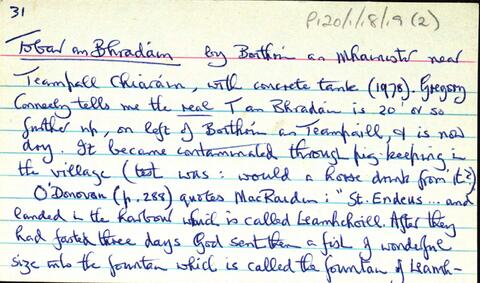 31
P120/1/18/19 (2)
Tobar an Bhradáin by Bóithrín an Mhainistir near
Teampall Chiaráin, with concrete tank (1978). Gregory
Conneely tells me the real T an Bhradáin is 20' or so
further up, on left of Bóithrín an Teampaill, & is now
dry. It became contaminated through pig-keeping in
the village (test was: would a horse drink from it?)
O'Donovan (p. 288) quotes MacRaidin: "St. Endeus ... and
landed in the harbour which is called Leamhchoill. After they
had fasted three days God sent them a fish of wonderful
size into the fountain which is called the fountain of Leamh-